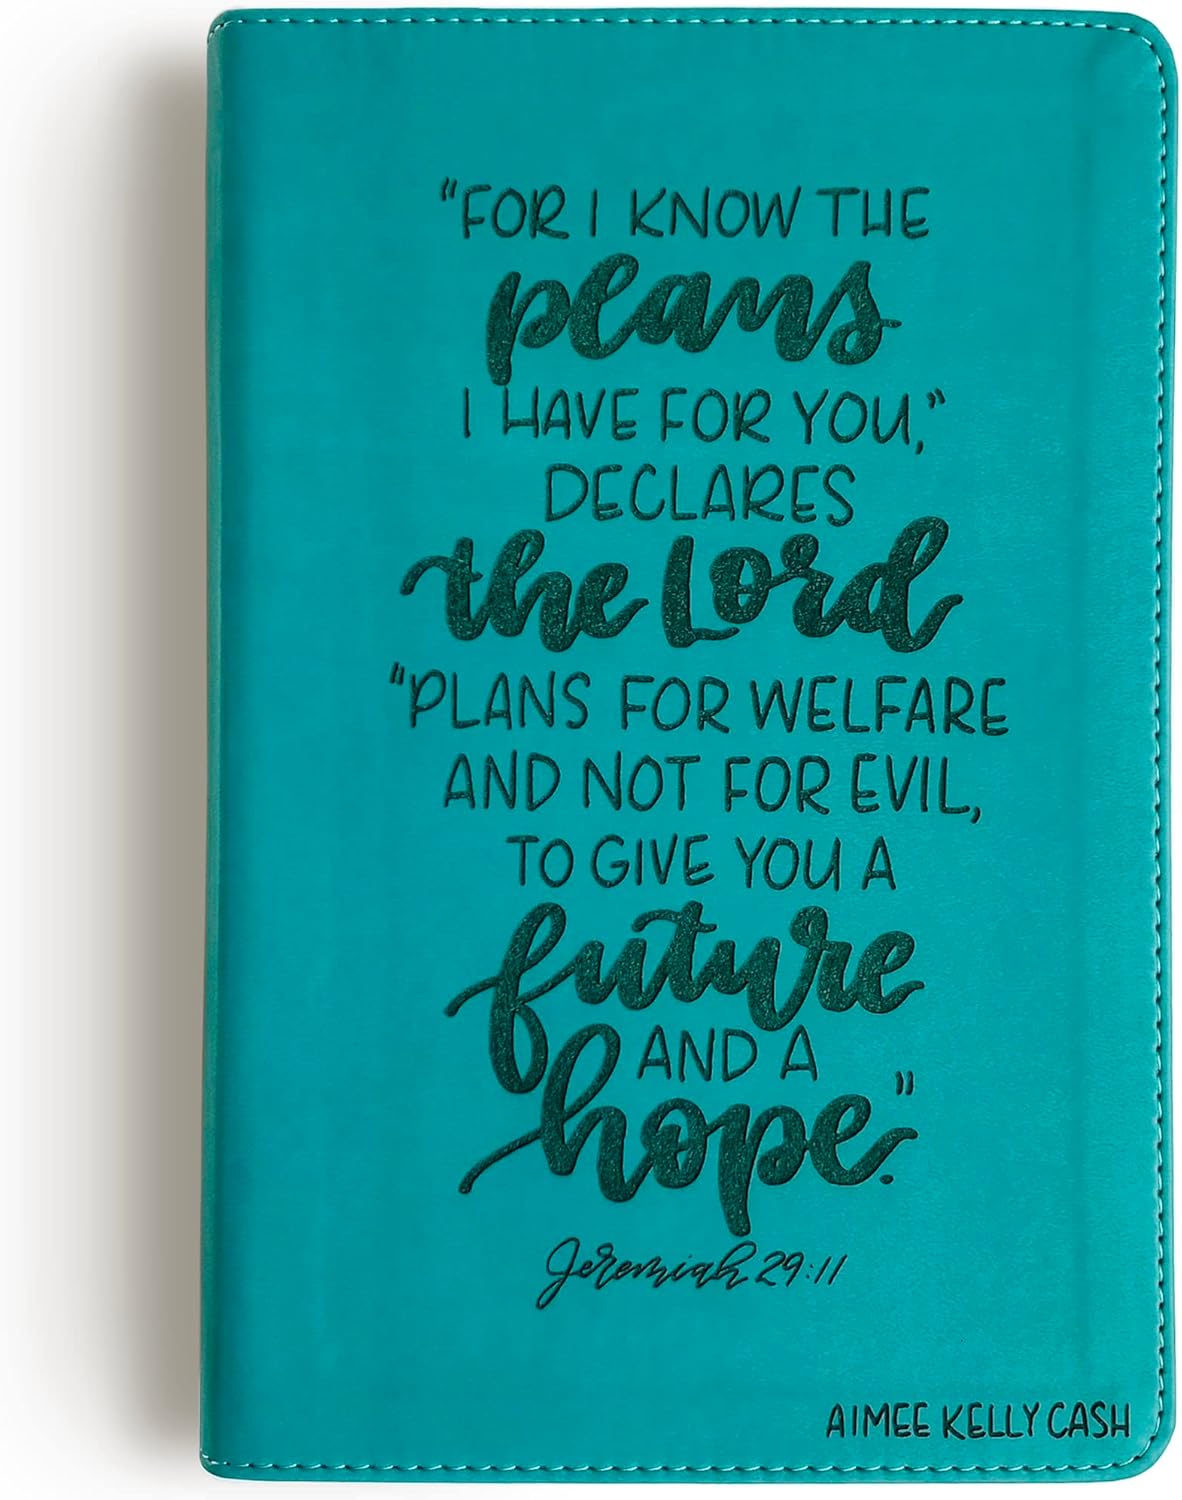 "FOR I KNOW THE
plans
I HAVE FOR YOU,"
DECLARES
the Lord
"PLANS FOR WELFARE
AND NOT FOR EVIL,
TO GIVE YOU A
future
AND A
hope."
Jeremiah 29:11
AIMEE KELLY CASH